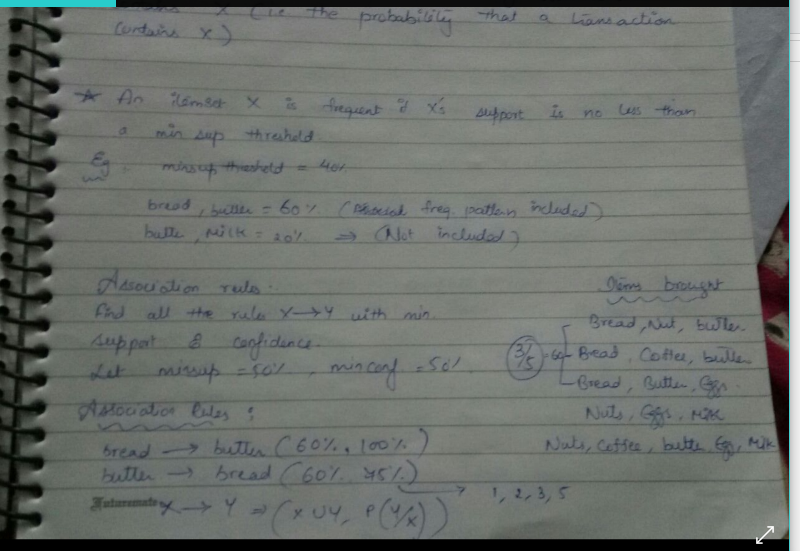 (i.e the probability that a transaction
contains X)
* An itemset X is frequent if X's support is no less than
a min sup threshold
Eg. minsup threshold = 40%
bread, butter = 60% ( freq. pattern included)
butter, Milk = 20% ⇒ (Not included)
Association rules:
Find all the rules X→Y with min.
support & confidence.
Let minsup = 50%, minconf = 50%
Association Rules:
bread → butter (60%, 100%)
butter → bread (60%, 75%)
→ 1, 2, 3, 5
X → Y ⇒ (X ∪ Y, P(Y/X))
Items brought
Bread, Nut, butter
3/5 Bread, Coffee, butter
Bread, Butter, Eggs.
Nuts, Eggs, Milk
Nuts, Coffee, butter, Eg, Milk
Futuremate